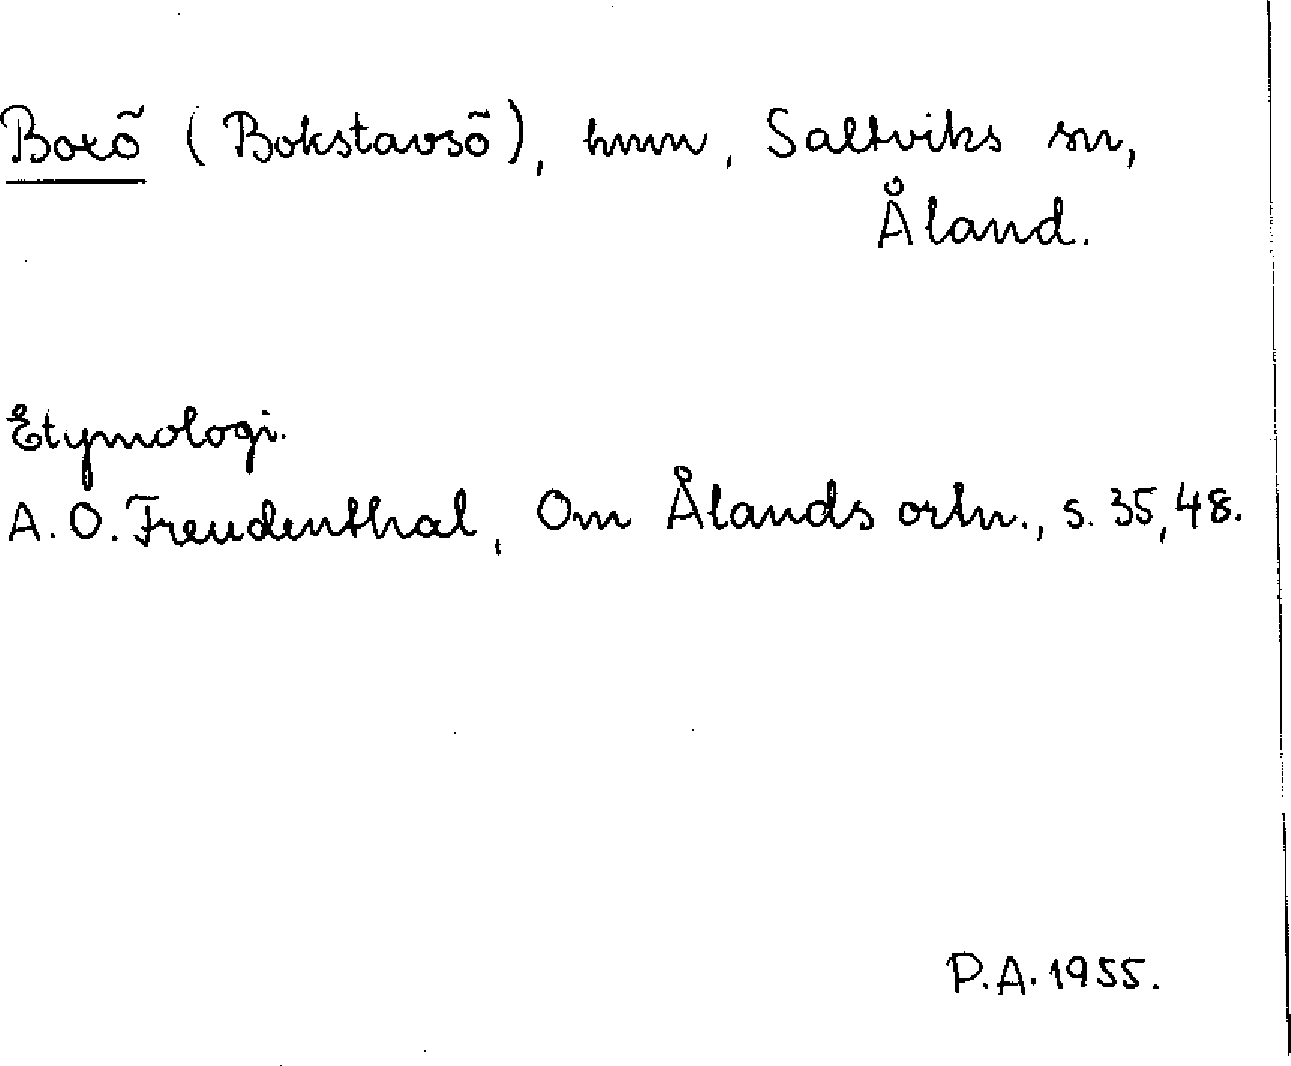 Boxö (Bokstavsö), hmn, Saltviks sn,
Åland.
Etymologi.
A. O. Freudenthal, Om Ålands ortn., s. 35, 48.
P.A. 1955.